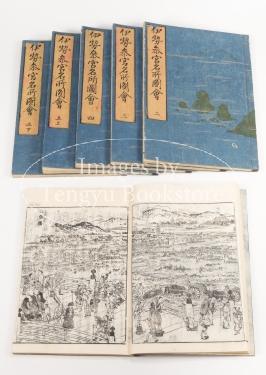 伊勢參宮名所圖會 五下
伊勢參宮名所圖會 五上
伊勢參宮名所圖會 四
伊勢參宮名所圖會 三
伊勢參宮名所圖會 二
Images by
Tengyu Bookstore